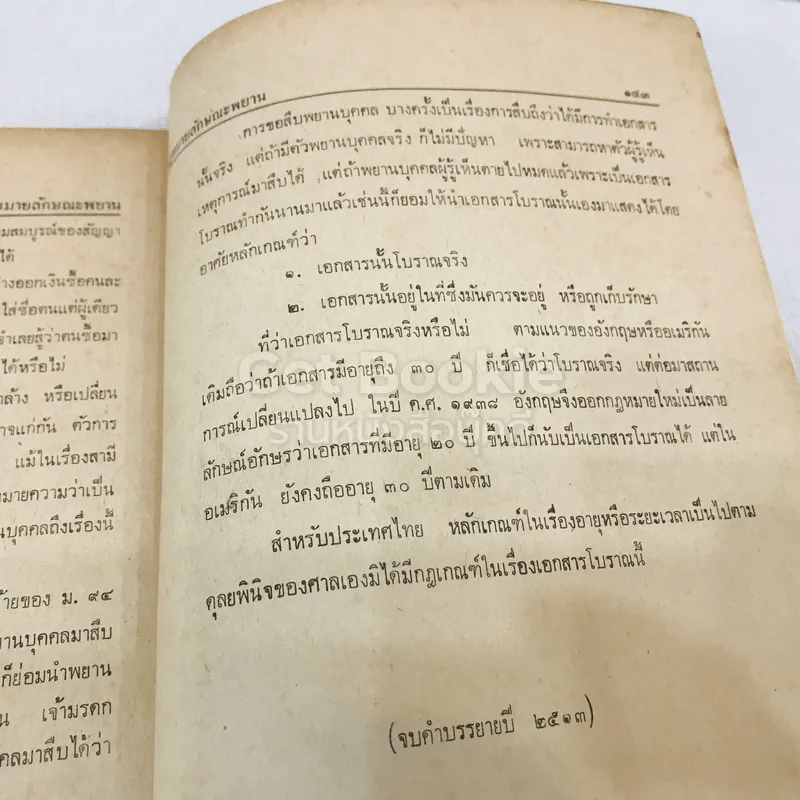 มายลักษณะพยาน
มสมบูรณ์ของสัญญา
ได้
่างออกเงินซื้อคนละ
ใส่ชื่อคนแต่ผู้เดียว
จำเลยสู้ว่าตนซื้อมา
ได้หรือไม่
ล้าง หรือเปลี่ยน
าจแก่กัน ตัวการ
แม้ในเรื่องสามี
มายความว่าเป็น
นบุคคลถึงเรื่องนี้
้ายของ ม. ๙๔
ยานบุคคลมาสืบ
ก็ย่อมนำพยาน
น เจ้ามรดก
คลมาสืบได้ว่า
มายลักษณะพยาน ๑๔๓
การขอสืบพยานบุคคล บางครั้งเป็นเรื่องการสืบถึงว่าได้มีการทำเอกสาร
นั้นจริง แต่ถ้ามีตัวพยานบุคคลจริง ก็ไม่มีปัญหา เพราะสามารถหาตัวผู้รู้เห็น
เหตุการณ์มาสืบได้ แต่ถ้าพยานบุคคลผู้รู้เห็นตายไปหมดแล้วเพราะเป็นเอกสาร
โบราณทำกันนานมาแล้วเช่นนี้ก็ยอมให้นำเอกสารโบราณนั้นเองมาแสดงได้โดย
อาศัยหลักเกณฑ์ว่า
๑. เอกสารนั้นโบราณจริง
๒. เอกสารนั้นอยู่ในที่ซึ่งมันควรจะอยู่ หรือถูกเก็บรักษา
ที่ว่าเอกสารโบราณจริงหรือไม่ ตามแนวของอังกฤษหรืออเมริกัน
เดิมถือว่าถ้าเอกสารมีอายุถึง ๓๐ ปี ก็เชื่อได้ว่าโบราณจริง แต่ต่อมาสถาน
Get Bookie
การณ์เปลี่ยนแปลงไป ในปี ค.ศ. ๑๙๓๘ อังกฤษจึงออกกฎหมายใหม่เป็นลาย
ลักษณ์อักษรว่าเอกสารที่มีอายุ ๒๐ ปี ขึ้นไปก็นับเป็นเอกสารโบราณได้ แต่ใน
อเมริกัน ยังคงถืออายุ ๓๐ ปีตามเดิม
สำหรับประเทศไทย หลักเกณฑ์ในเรื่องอายุหรือระยะเวลาเป็นไปตาม
ดุลยพินิจของศาลเองมิได้มีกฎเกณฑ์ในเรื่องเอกสารโบราณนี้
(จบคำบรรยายปี ๒๕๑๓)